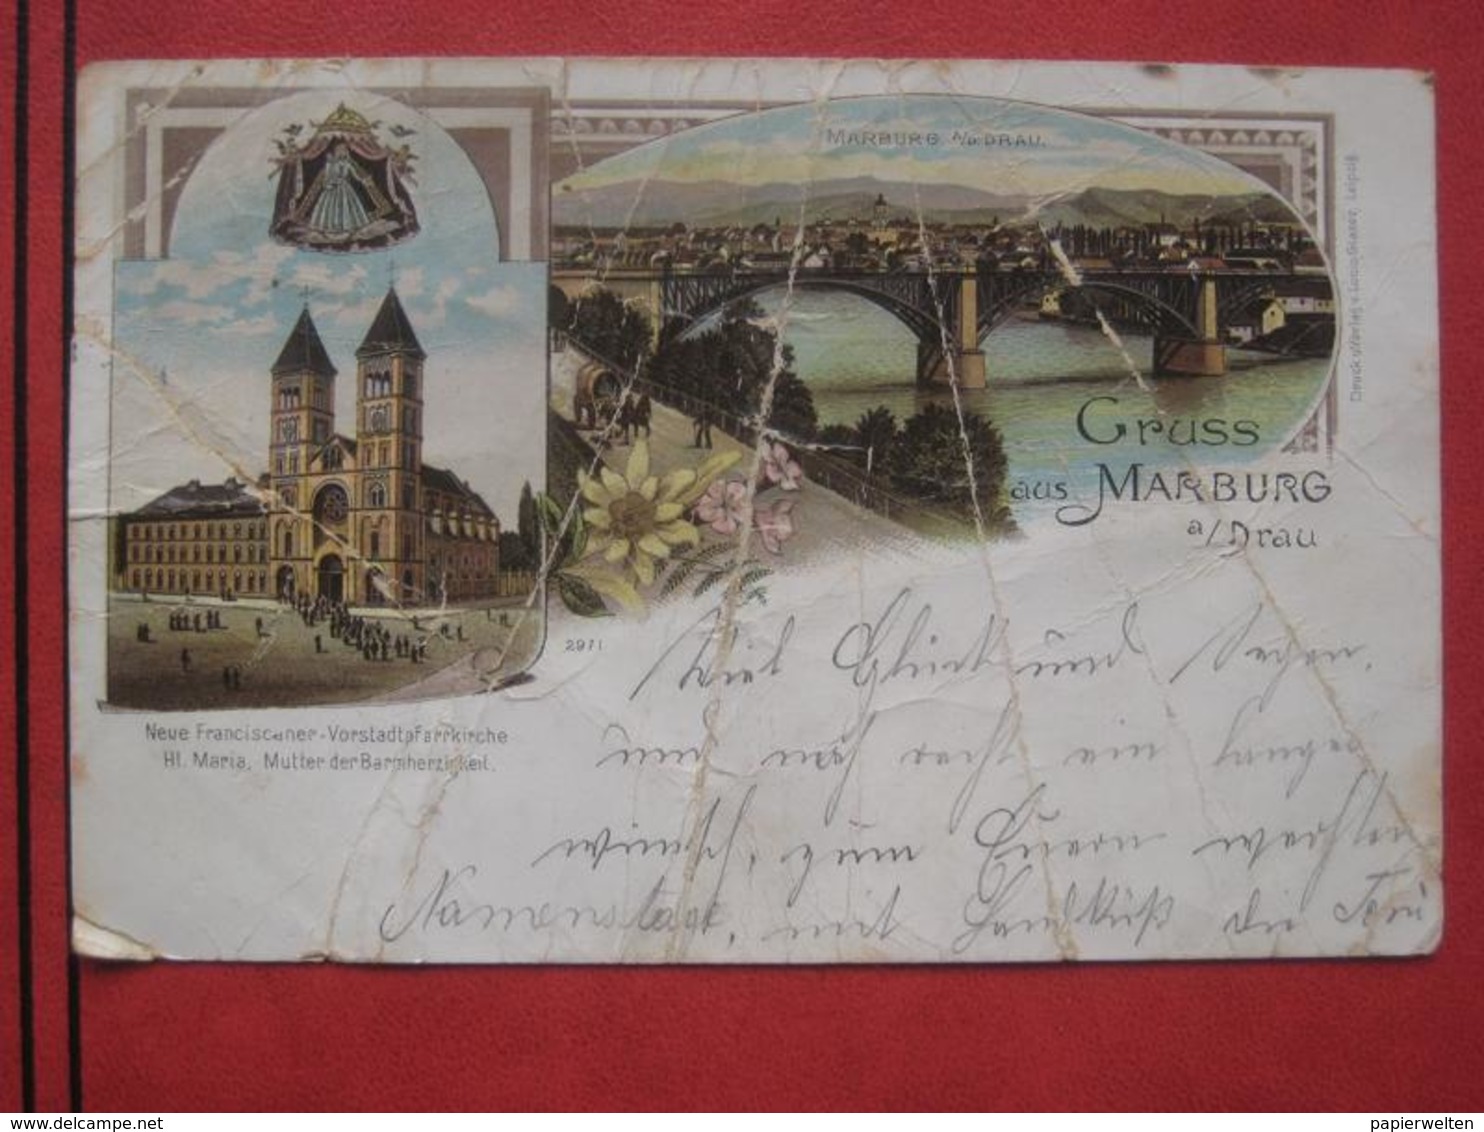 MARBURG A/D. DRAU.
Gruss
aus MARBURG
a/Drau
Druck u. Verlag v. Louis Glaser, Leipzig.
2971
Neue Franciscaner-Vorstadtpfarrkirche
Hl. Maria, Mutter der Barmherzigkeit.
Viel Glück und Segen,
und noch recht ein langes
wünsch, zum Euern werthen
Namenstage, mit Handkuß die
delcampe.net
papierwelten